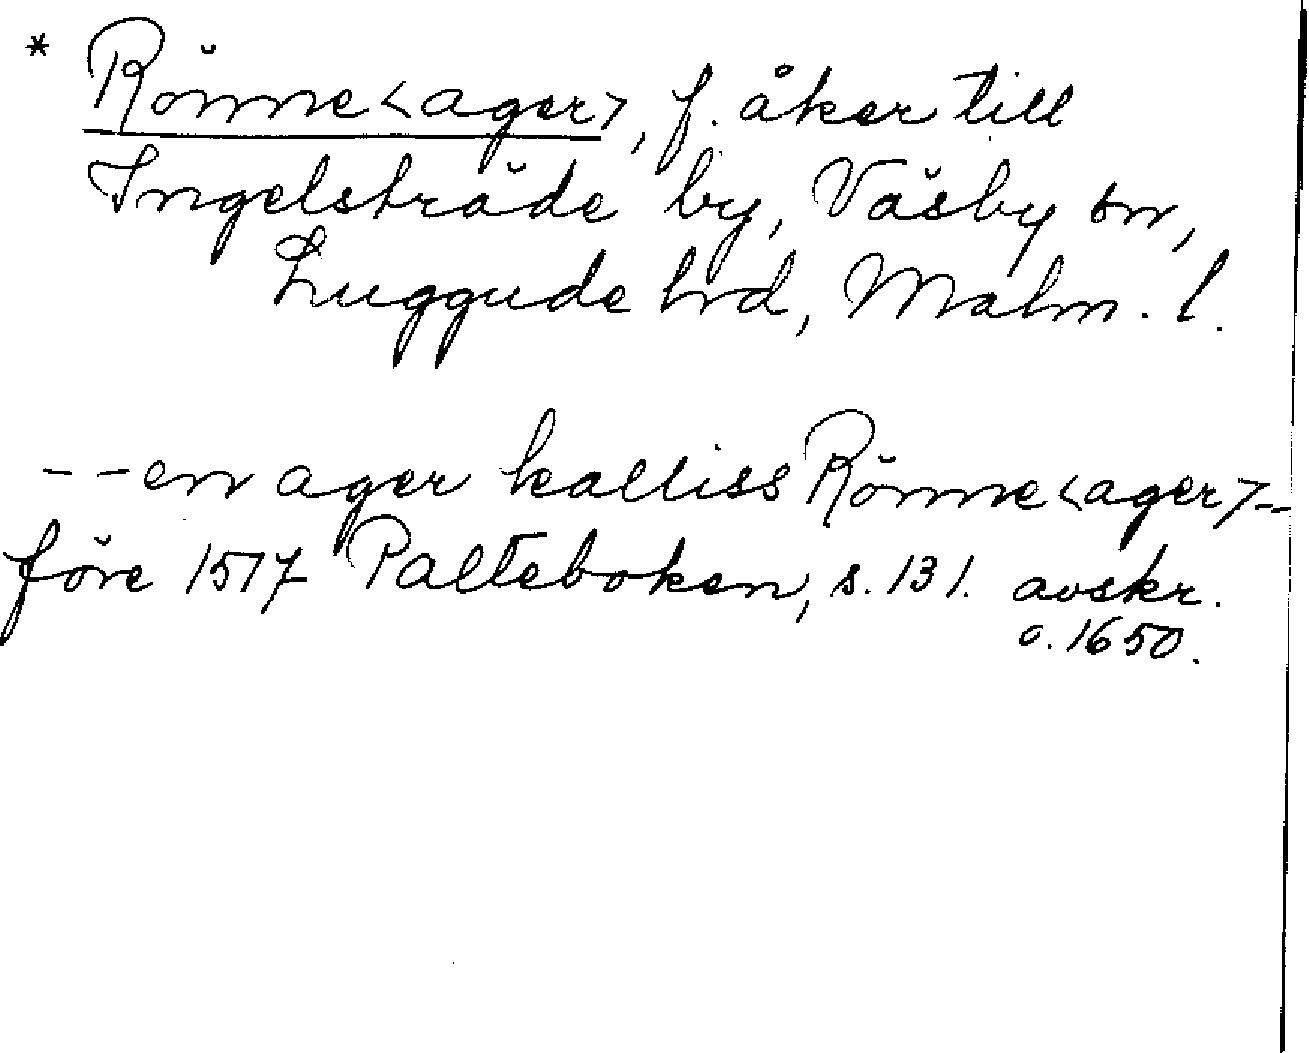 * Rönne<ager>, f. åker till
Ingelsträde by, Väsby sn,
Luggude hrd, Malm. l.
-- en ager kalliss Rönne<ager> --
före 1517 Palteboken, s. 131. avskr.
c. 1650.